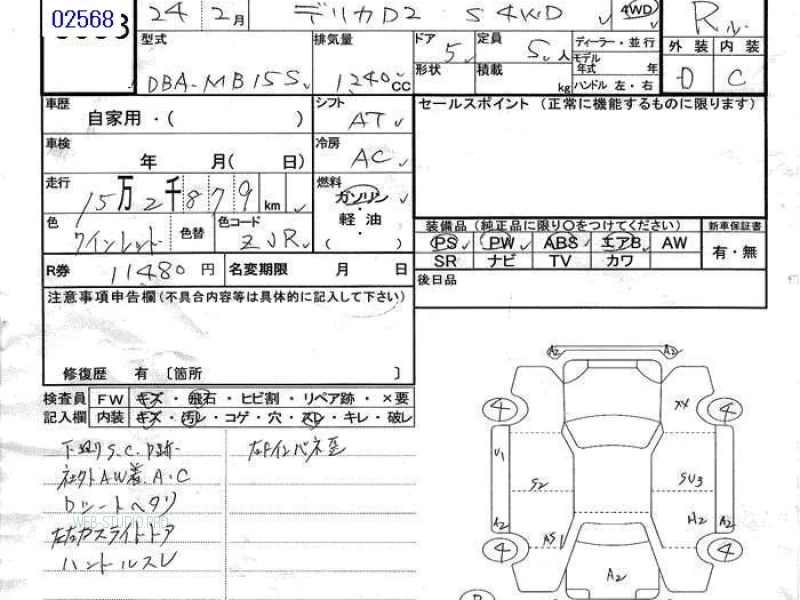 02568
24 2月 デリカD2 S 4WD 4WD R
型式 排気量 ドア 5 定員 5人 ディーラー・並行 外装 内装
DBA-MB15S 1240cc 形状 積載 kg モデル年式 年 ハンドル 左・右 D C
車歴 シフト セールスポイント (正常に機能するものに限ります)
自家用・( ) AT
車検 冷房
年 月( 日) AC
走行 15万2千879km 燃料 ガソリン・軽油・( )
色 ワインレッド 色替 色コード ZJR
装備品(純正品に限り○をつけてください) 新車保証書
PS PW ABS エアB AW 有・無
SR ナビ TV カワ
R券 11480円 名変期限 月 日 後日品
注意事項申告欄(不具合内容等は具体的に記入して下さい)
修復歴 有 〔箇所 〕
検査員 FW キズ・飛石・ヒビ割・リペア跡・×要
記入欄 内装 キズ・汚レ・コゲ・穴・スレ・キレ・破レ
下廻りS.C.
AW着.A.C
Dシートヘタリ
WEB-STUDIO.PRO
スライドドア
ハンドルスレ
A2 A2
4 XX 4
U1 S2 SU3
A2 H2 A2
4 AS1 4
A2
R